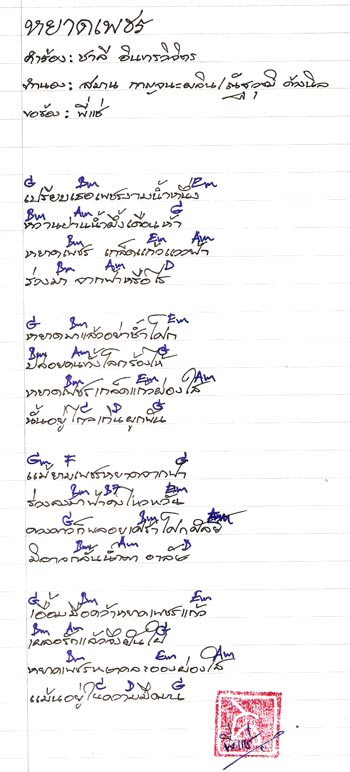 หยาดเพชร
คำร้อง: ชาลี อินทรวิจิตร
ทำนอง: สมาน กาญจนะผลิน/
ขอร้อง: พี่แช่
G Bm Em
เปรียบเธอเพชรงามน้ำหนึ่ง
Bm Am G
หวานปานน้ำผึ้งเดือนห้า
Bm Em Am
หยาดเพชร เกล็ดแก้วแววฟ้า
Bm Am D
ร่วงมา จากฟ้าหรือไร
G Bm Em
หยาดมาแล้วอย่าช้ำโศก
Bm Am G
ปล่อยคนทั้งโลกร้องไห้
Bm Em Am
หยาดเพชรเกล็ดแก้วผ่องใส
C D G
นั้นอยู่ไกลเกินผูกพัน
Gm F G
แม้ยามเพชรหยาดจากฟ้า
Bm B7 Em
ร่วงลงมาฟ้าคงไหวหวั่น
G Bm Em
ดวงดาวก็พลอยเศร้าโศกศัลย์
Bm Am D
มิอาจกลั้นน้ำตา อาลัย
G Bm Em
เอื้อมมือคว้าหยาดเพชรแก้ว
Bm Am G
เผลอรักแล้วจึงฝันใฝ่
Bm Em Am
หยาดเพชรหยาดละอองผ่องใส
C D G
แม้นอยู่ในความมืดมน
พี่แช่